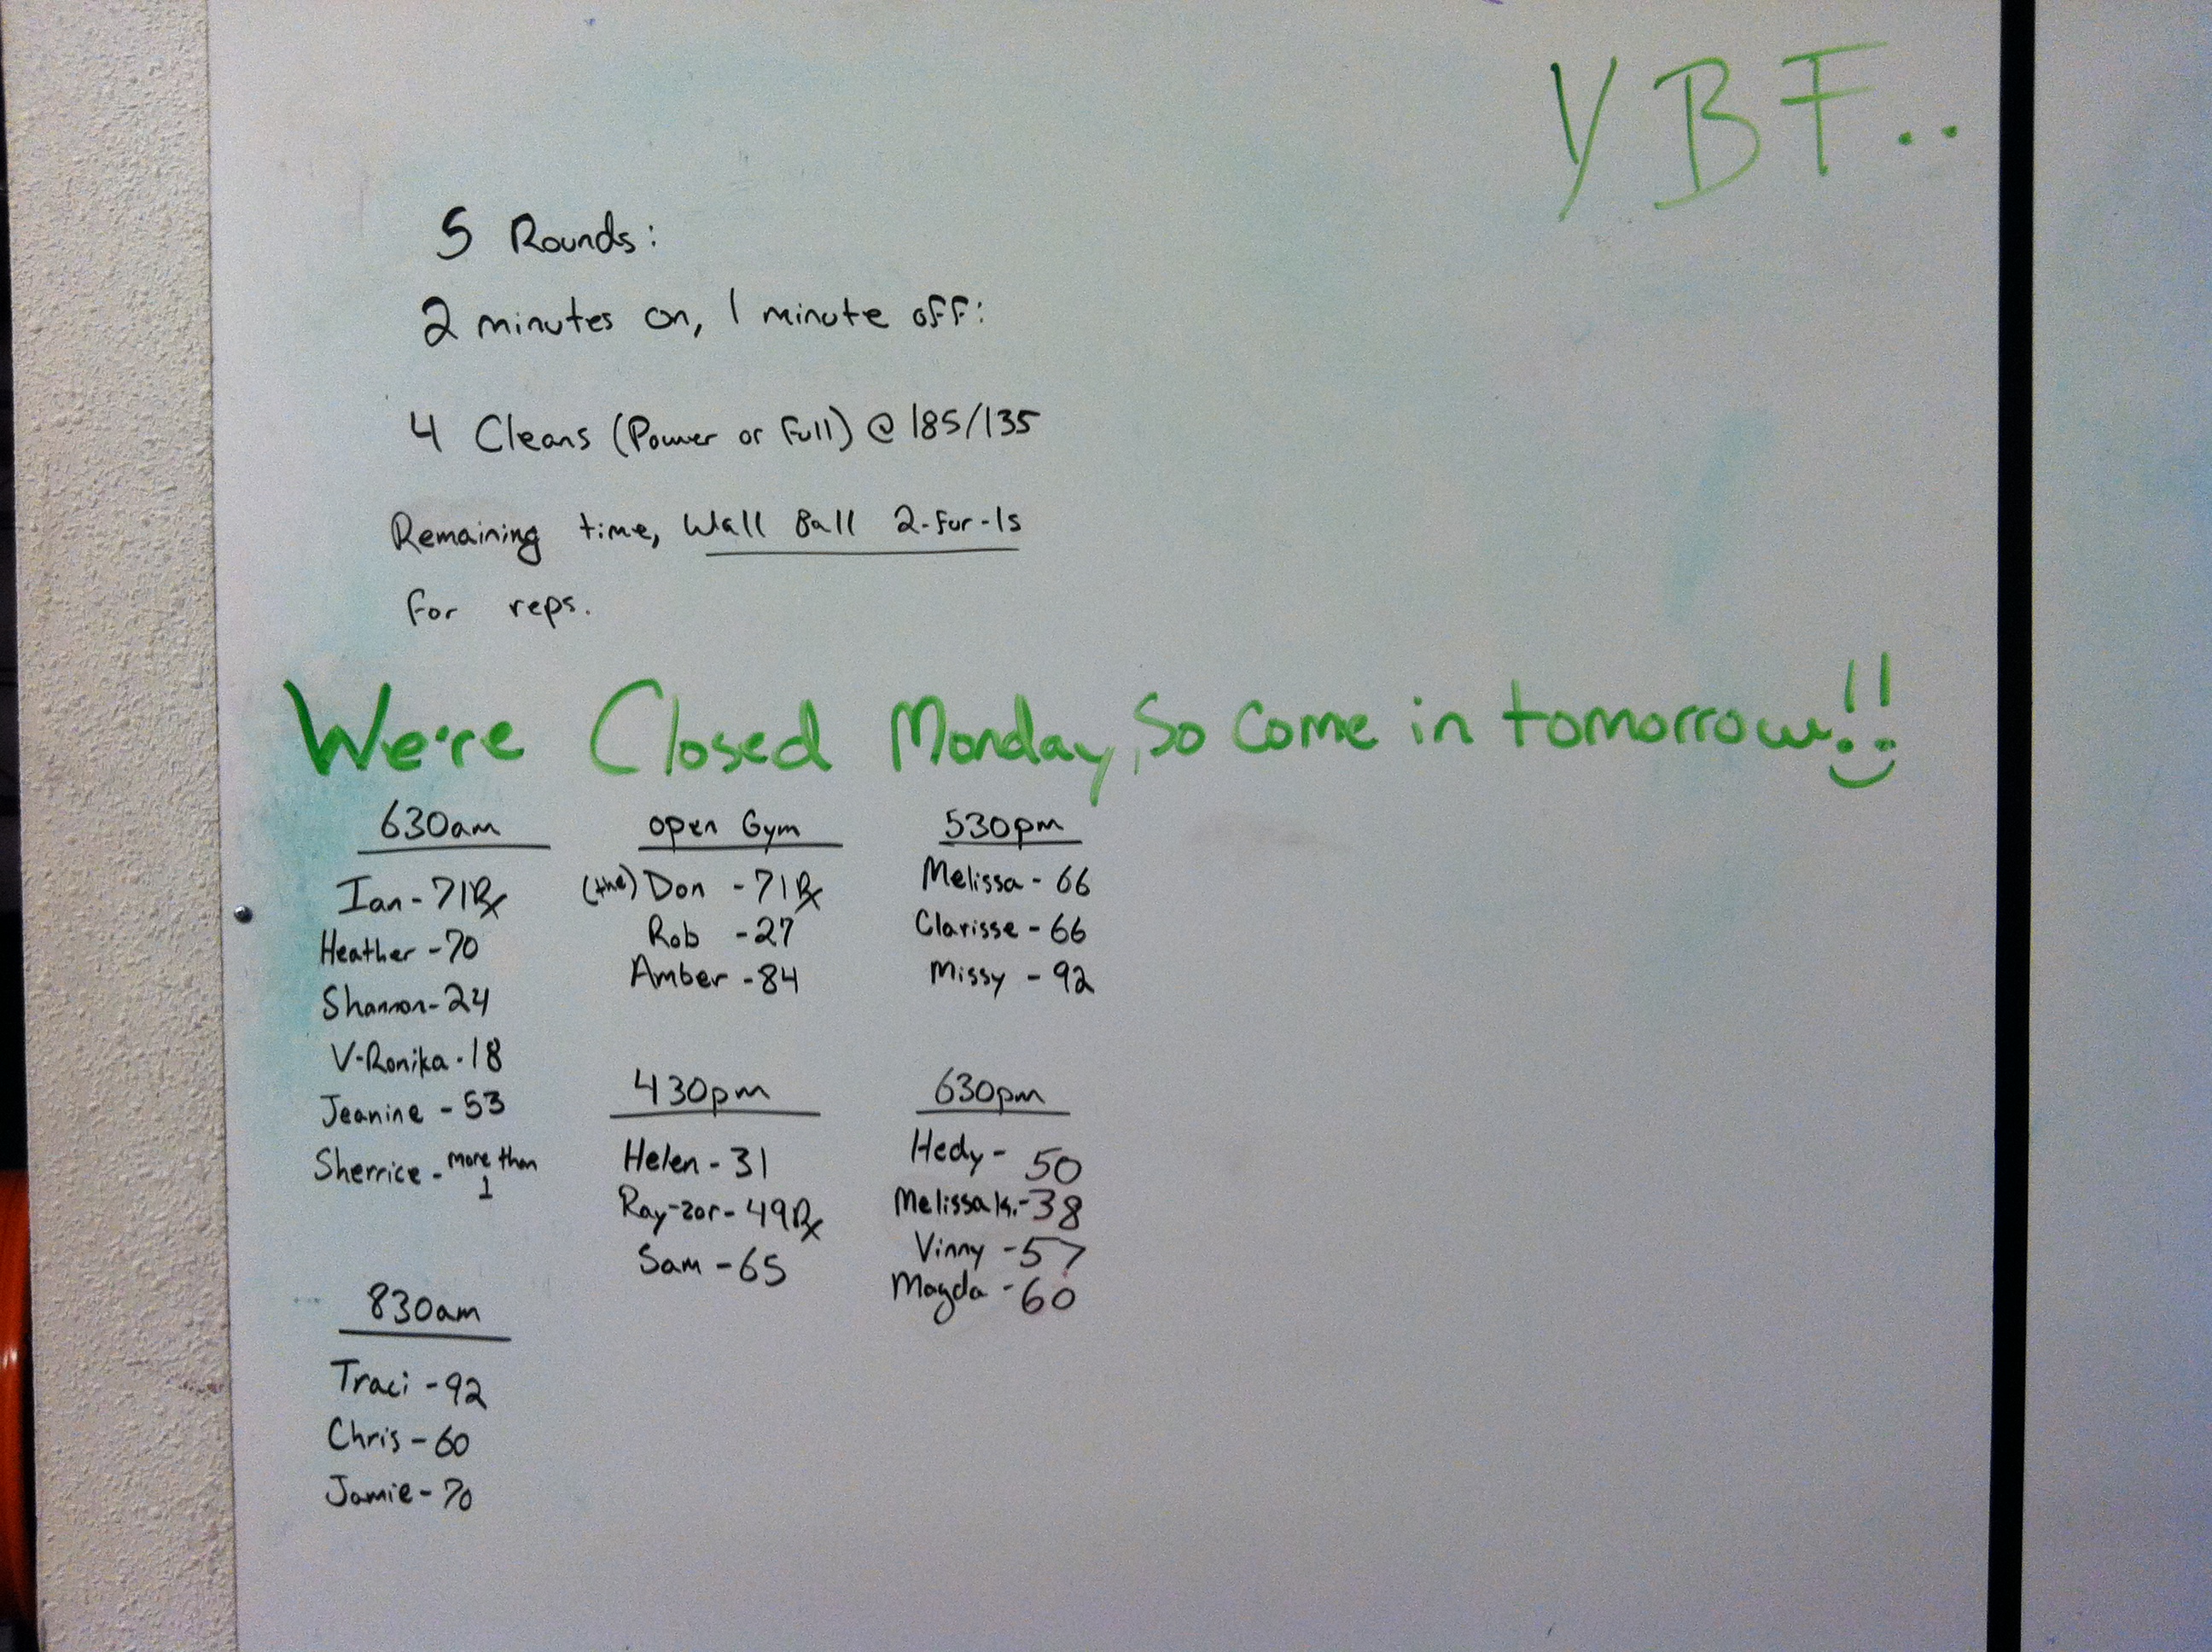 YBF..
5 Rounds:
2 minutes on, 1 minute off:
4 Cleans (Power or Full) @ 185/135
Remaining time, Wall Ball 2-fur-1s
for reps.
We're Closed Monday, So come in tomorrow!!
630am
Ian - 71 Rx
Heather - 70
Shannon - 24
V-Ronika - 18
Jeanine - 53
Sherrice - more than
1
830am
Traci - 92
Chris - 60
Jamie - 70
open Gym
(the) Don - 71 Rx
Rob - 27
Amber - 84
430pm
Helen - 31
Ray-zor - 49 Rx
Sam - 65
530pm
Melissa - 66
Clarisse - 66
Missy - 92
630pm
Hedy - 50
Melissa K. - 38
Vinny - 57
Magda - 60